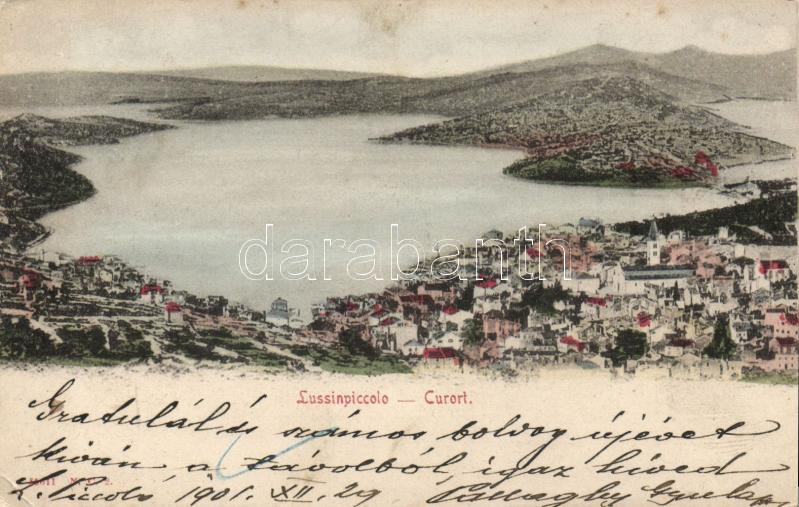 darabanth
Lussinpiccolo — Curort.
Gratulálás számos boldog újévet
kiván a távolból, igaz híved
L. Piccolo, 1901. XII. 29 Gyula